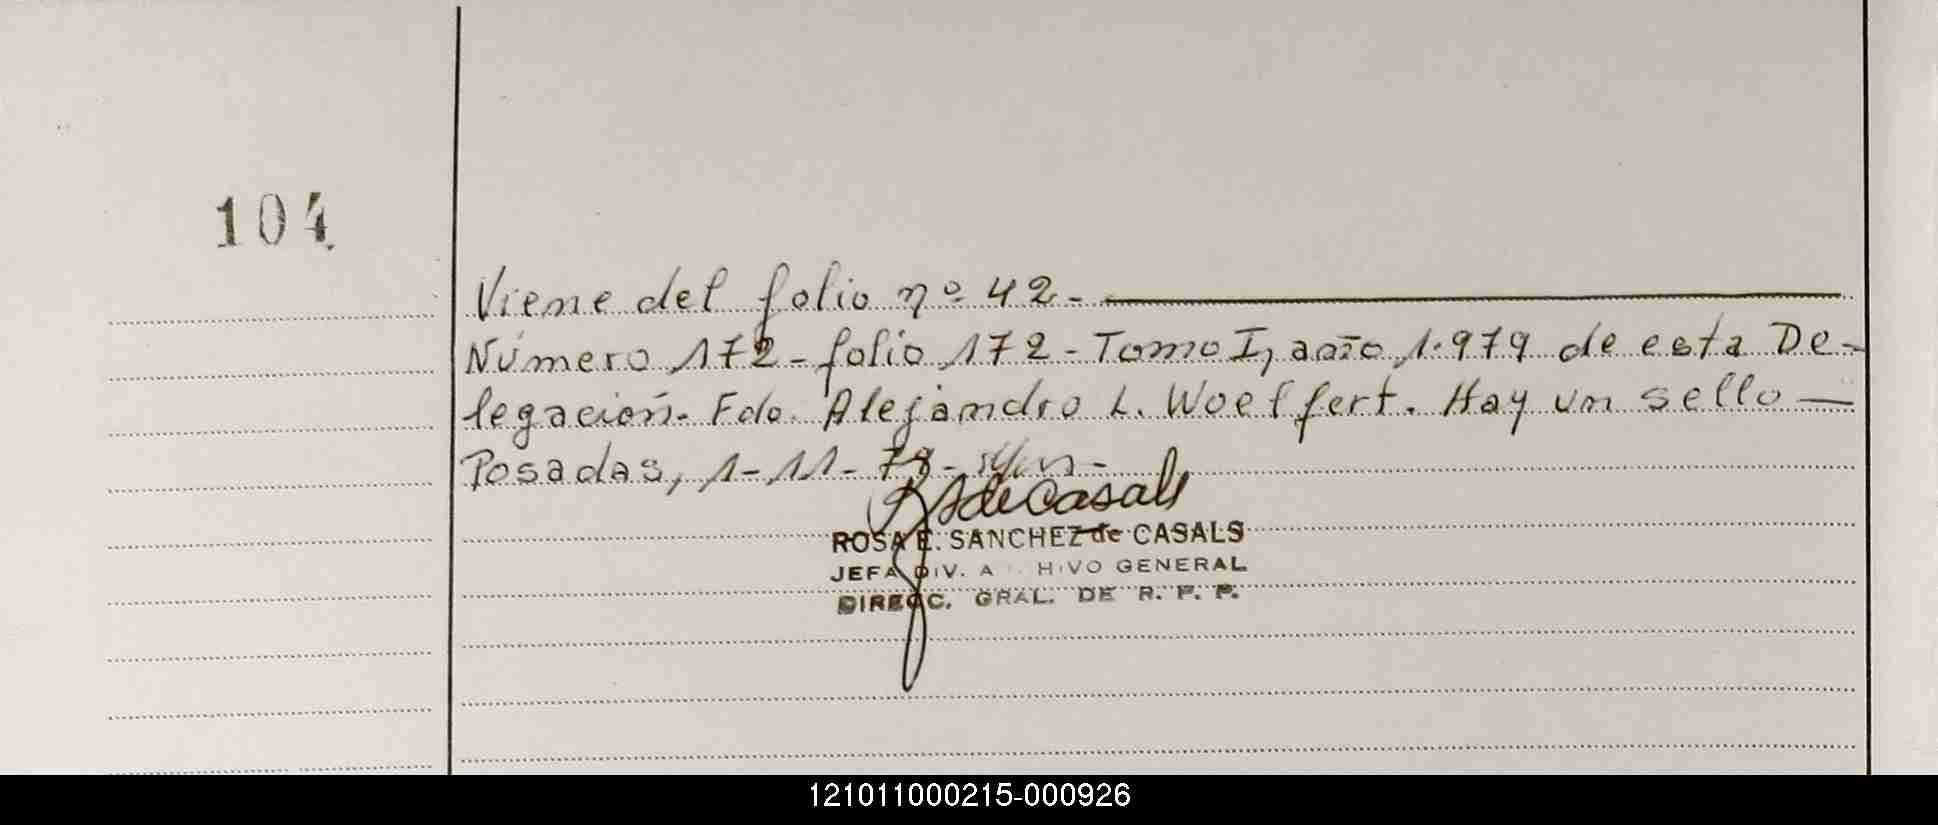 104
Viene del folio nº 42-
Número 172- folio 172- Tomo I, año 1.979 de esta De-
legación. Fdo. Alejandro L. Woeffert. Hay un sello —
Posadas, 1-11-79-
RSdeCasals
ROSA E. SANCHEZ de CASALS
JEFA DIV. A HIVO GENERAL
DIRECC. GRAL. DE R. P. P.
121011000215-000926